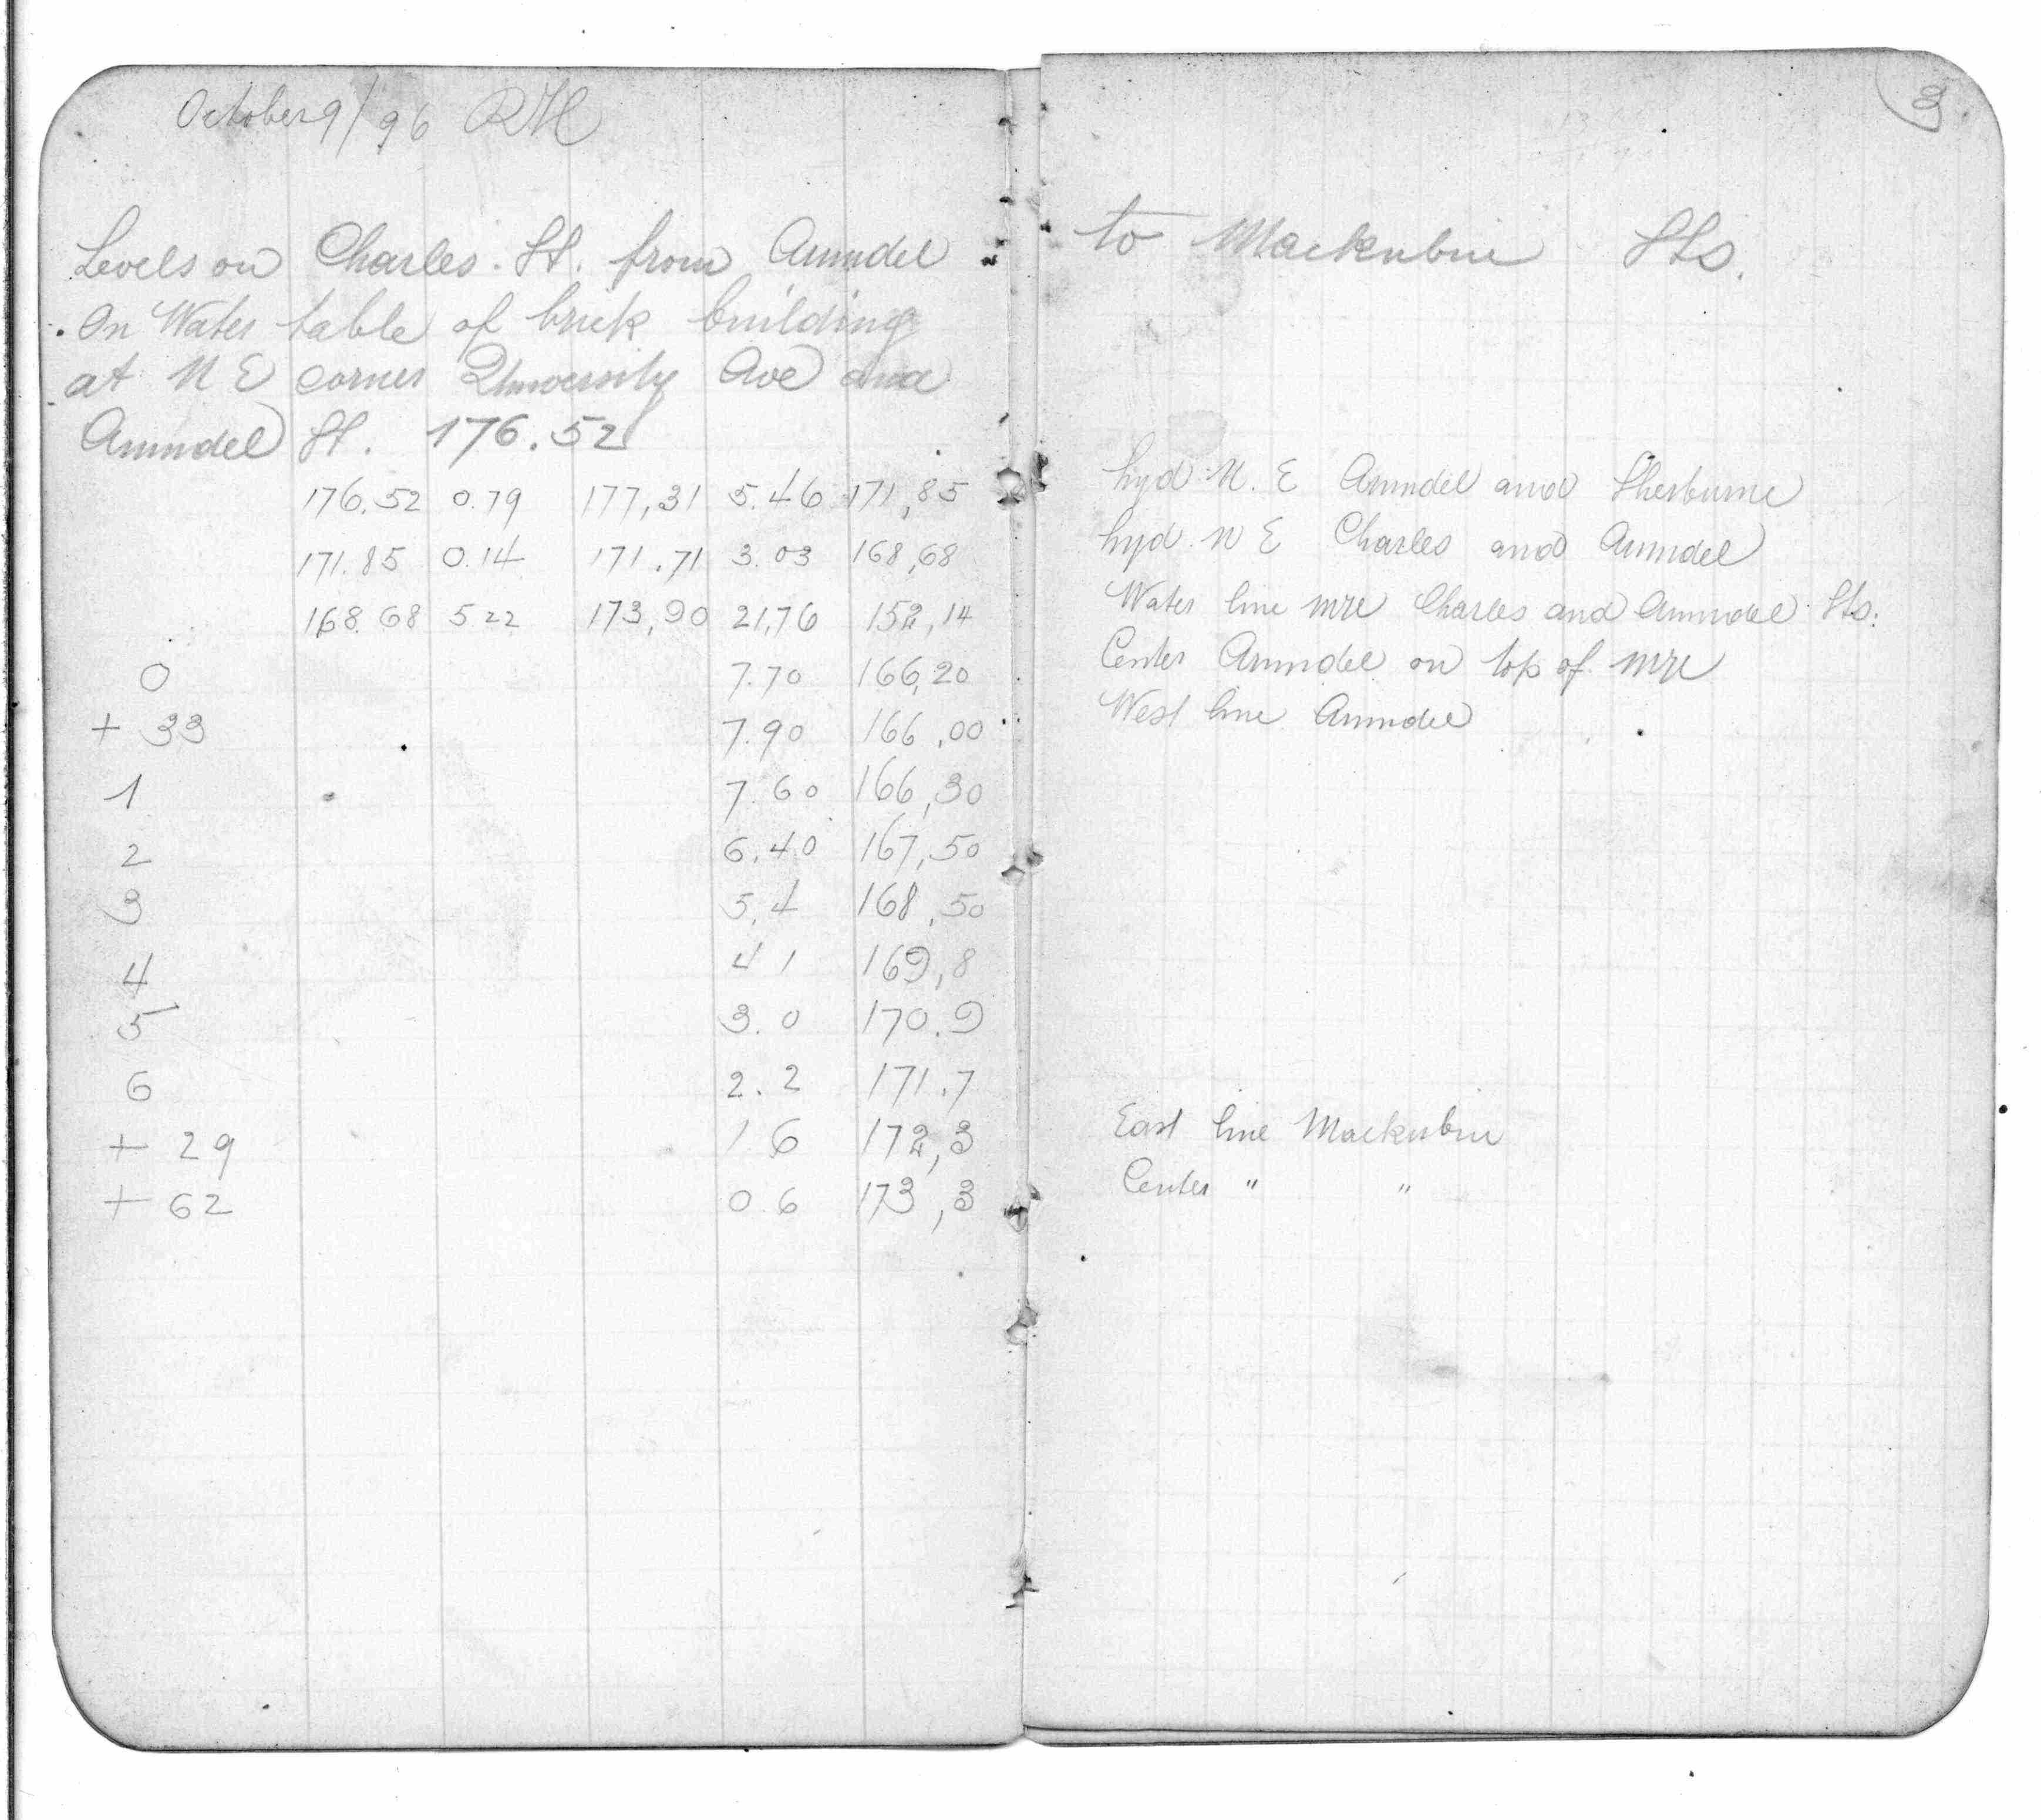 October 9/96 RH
3.
Levels on Charles. St. from Arundel to Mackubin Sts.
On Water table of brick building
at N E corner University Ave and
Arundel St. 176.52
176.52 0.79 177,31 5.46 171,85 hyd N. E Arundel and Sherburne
171.85 0.14 171.71 3.03 168,68 hyd. N E Charles and Arundel
168.68 5.22 173,90 21,76 152,14 Water line Charles and Arundel Sts.
0 7.70 166,20 Center Arundel on top of
+ 33 7.90 166,00 West line Arundel
1 7.60 166,30
2 6.40 167,50
3 5.4 168,50
4 4 1 169,8
5 3.0 170.9
6 2.2 171.7
+ 29 1 6 172,3 East line Mackubin
+ 62 0.6 173,3 Center " "